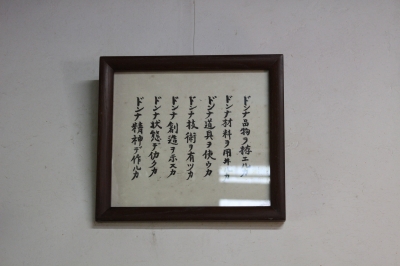 ドンナ品物ヲ拵エルカ
ドンナ材料ヲ用井ルカ
ドンナ道具ヲ使ウカ
ドンナ技術ヲ有ツカ
ドンナ創造ヲ示スカ
ドンナ状態デ仂クカ
ドンナ精神デ作ルカ